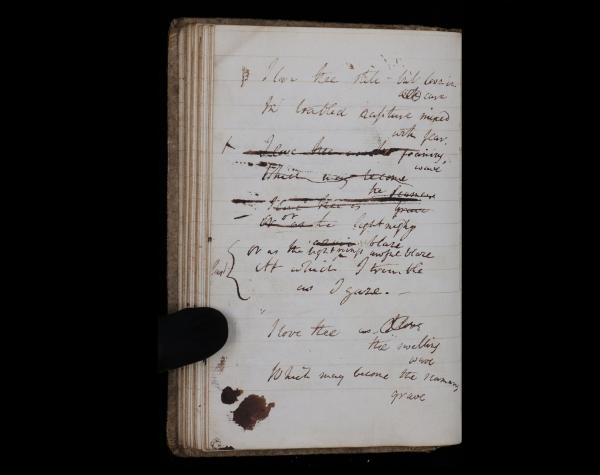 I love thee still - but love is
care
rapture mixed
with fear.
I love thee
foaming
wave
Which may become
the seaman's
I love thee as
grave
Or as the lightning
blaze
Or as the lightnings awful blaze
At which I tremble
as I gaze. -
I love thee as I love
the swelling
wave
Which may become the seamans
grave